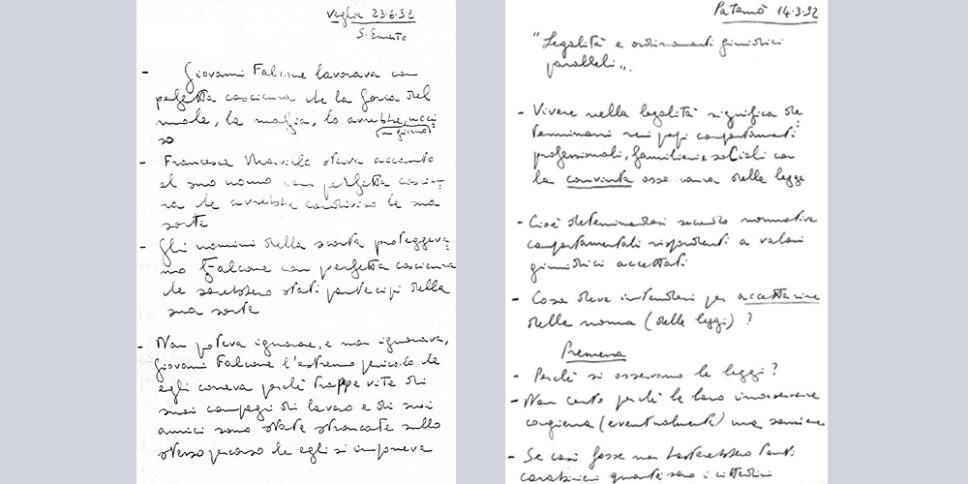 Veglia 23.6.92
S. Ernesto
- Giovanni Falcone lavorava con
perfetta coscienza che la forza del
male, la mafia, lo avrebbe ucci
un giorno
so
- Francesca Morvillo stava accanto
al suo uomo con perfetta coscien
za che avrebbe condiviso la sua
sorte
- Gli uomini della scorta proteggeva
no Falcone con perfetta coscienza
che sarebbero stati partecipi della
sua sorte
- Non poteva ignorare, e non ignorava,
Giovanni Falcone l'estremo pericolo che
egli correva perché troppe vite di
suoi compagni di lavoro e di suoi
amici sono state stroncate sullo
stesso percorso che egli si imponeva
Paternò 14.3.92
"Legalità e ordinamenti giuridici
paralleli".
- Vivere nella legalità significa de
terminarsi nei propri comportamenti
professionali, familiari e sociali con
la convinta osservanza della legge
- Cioè determinandosi secondo normative
comportamentali rispondenti a valori
giuridici accettati
- Cosa deve intendersi per accettazione
della norma (delle leggi)?
Premessa
- Perché si osservano le leggi?
- Non certo perché la loro inosservanza
cagiona (eventualmente) una sanzione
- Se così fosse non basterebbero tanti
carabinieri quanti sono i cittadini